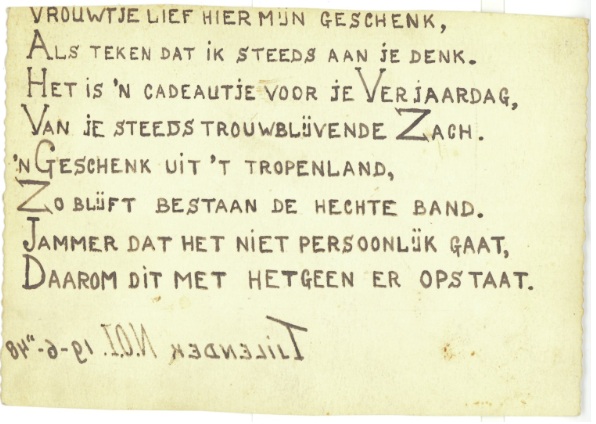 Vrouwtje lief hier mijn geschenk,
Als teken dat ik steeds aan je denk.
Het is 'n cadeautje voor je Verjaardag,
Van je steeds trouwblijvende Zach.
'n Geschenk uit 't tropenland,
Zo blijft bestaan de hechte band.
Jammer dat het niet persoonlijk gaat,
Daarom dit met hetgeen er opstaat.
Tjilender N.O.I. 19-6-"48